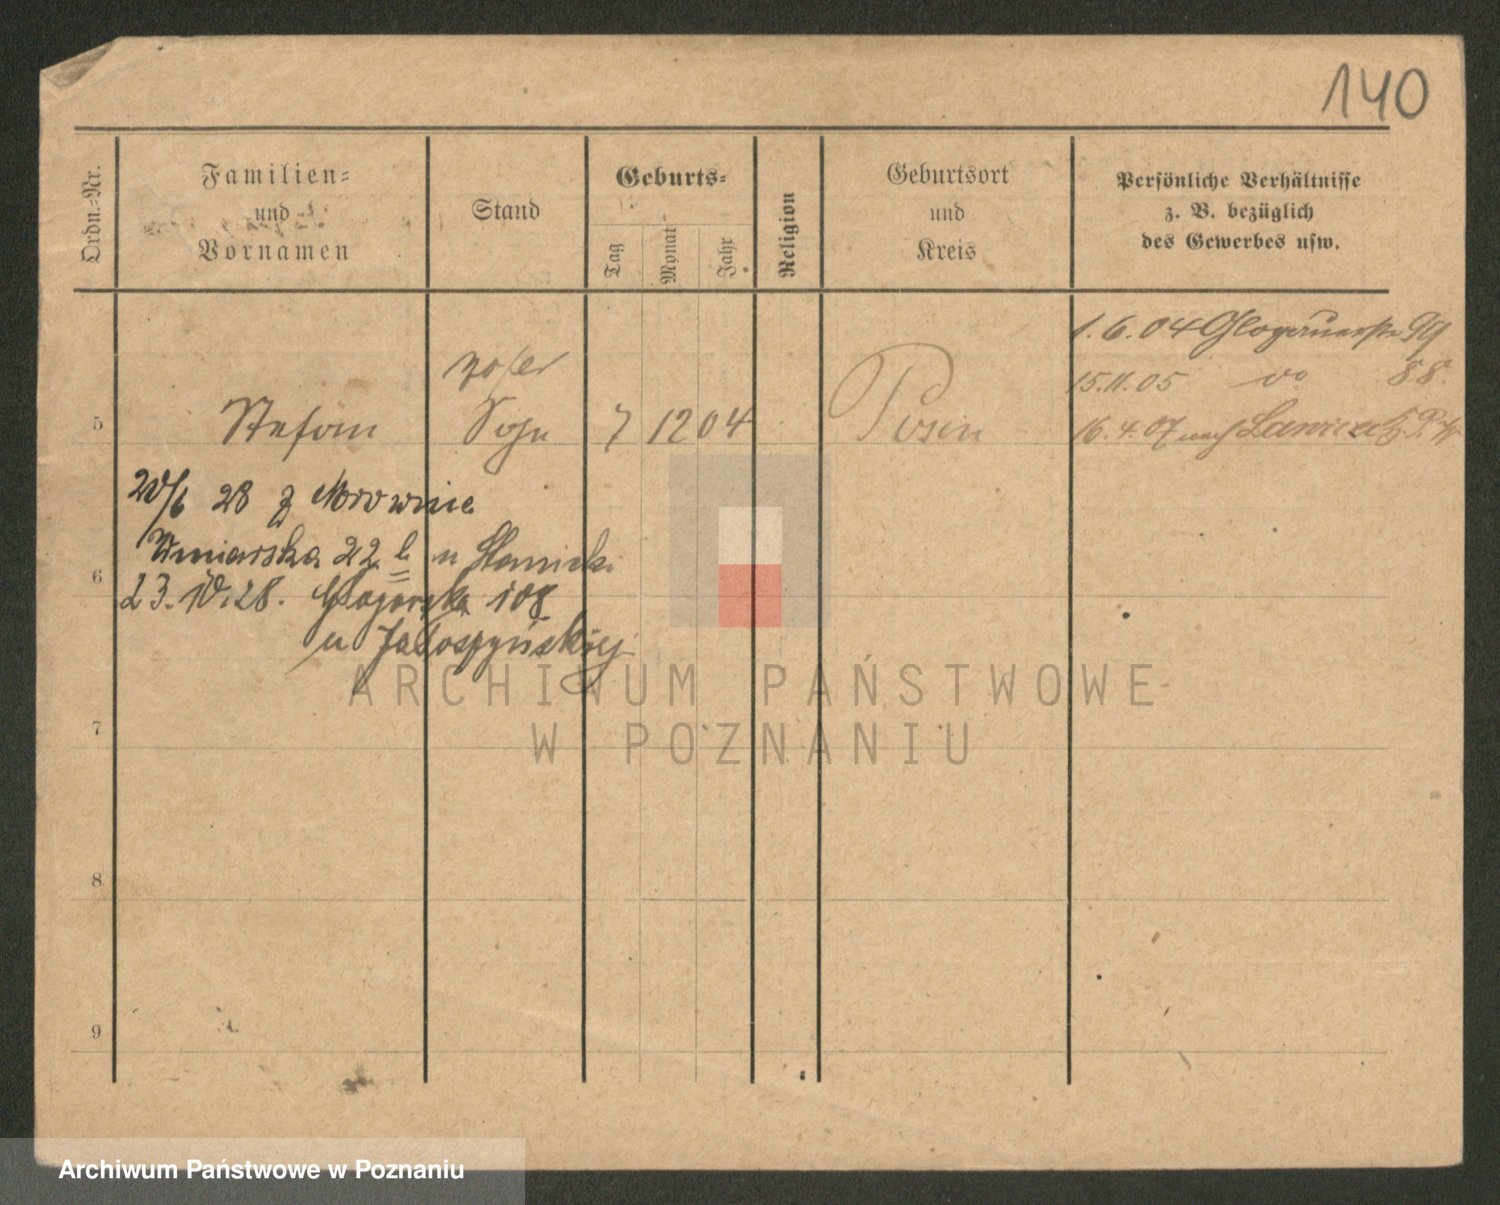 140
Ordn.-Nr.
Familien-
und
Vornamen
Stand
Geburts-
Tag
Monat
Jahr
Religion
Geburtsort
und
Kreis
Persönliche Verhältnisse
z. B. bezüglich
des Gewerbes usw.
1.6.04 Glogauerstr 99
15.11.05 do 88.
5 Stefan Sohn 7 12 04 Posen 16.4.07 nach
20/6 28 z
22 u
6
23.10.28. Głogowska 108
u Jabłoszyńskiej
ARCHIWUM PAŃSTWOWE
W POZNANIU
7
8
9
Archiwum Państwowe w Poznaniu